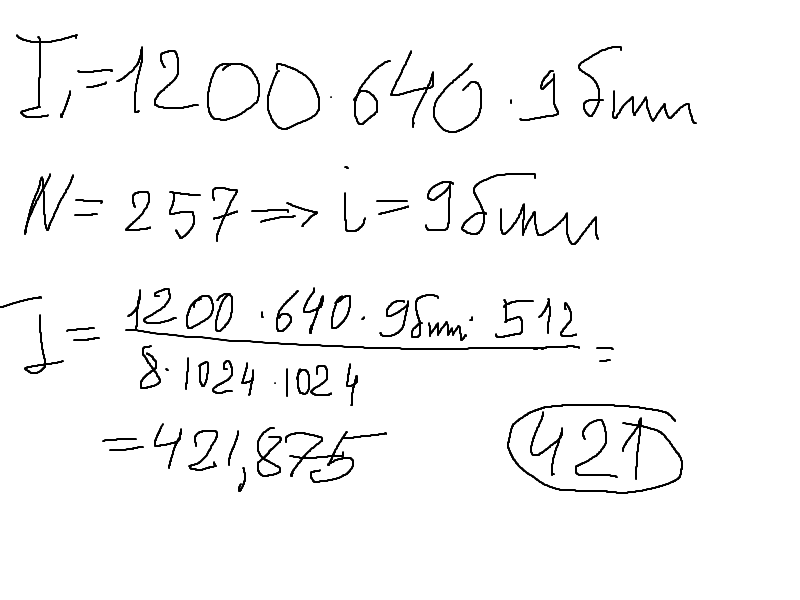 I₁=1200·640·9бит
N=257=>i=9бит
I=1200·640·9бит·512
8·1024·1024
=
=421,875 421